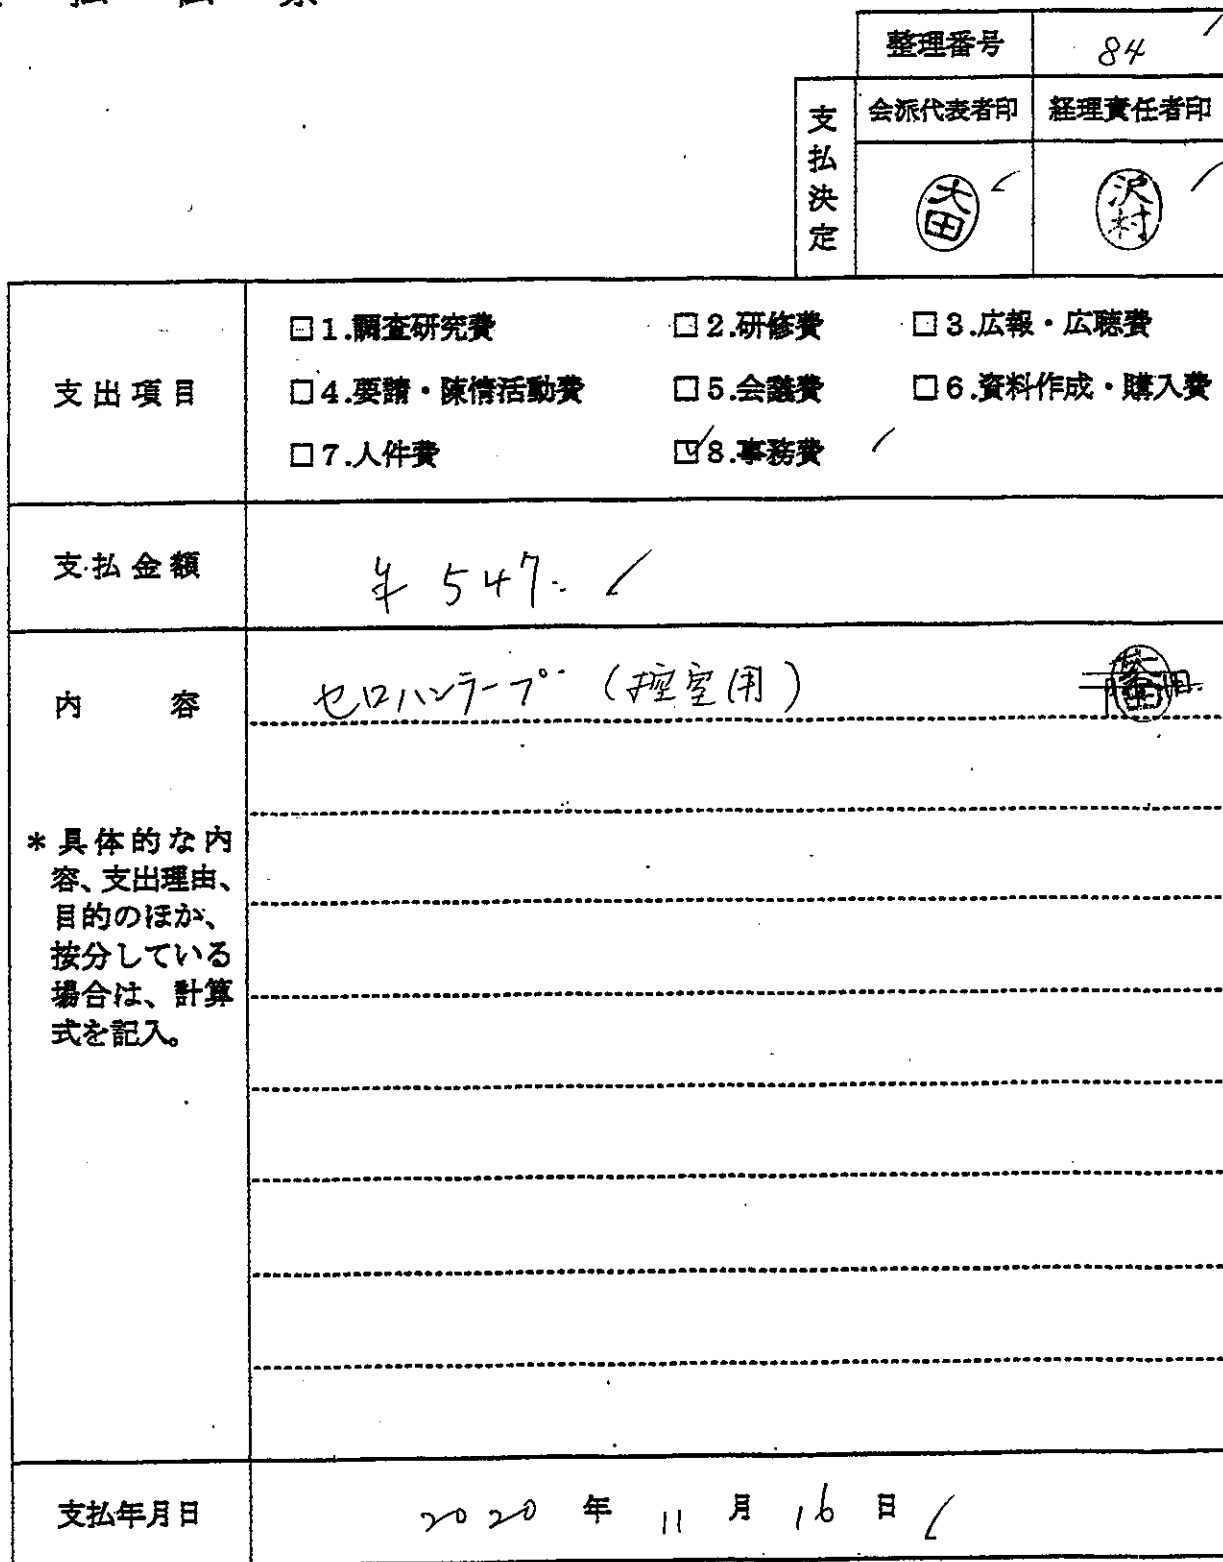 整理番号 84
支払決定
会派代表者印 経理責任者印
大田 沢村
支出項目
□1.調査研究費 □2.研修費 □3.広報・広聴費
□4.要請・陳情活動費 □5.会議費 □6.資料作成・購入費
□7.人件費 ☑8.事務費
支払金額 ¥547.-
内容 セロハンテープ(控室用)
*具体的な内
容、支出理由、
目的のほか、
按分している
場合は、計算
式を記入。
支払年月日 2020年11月16日